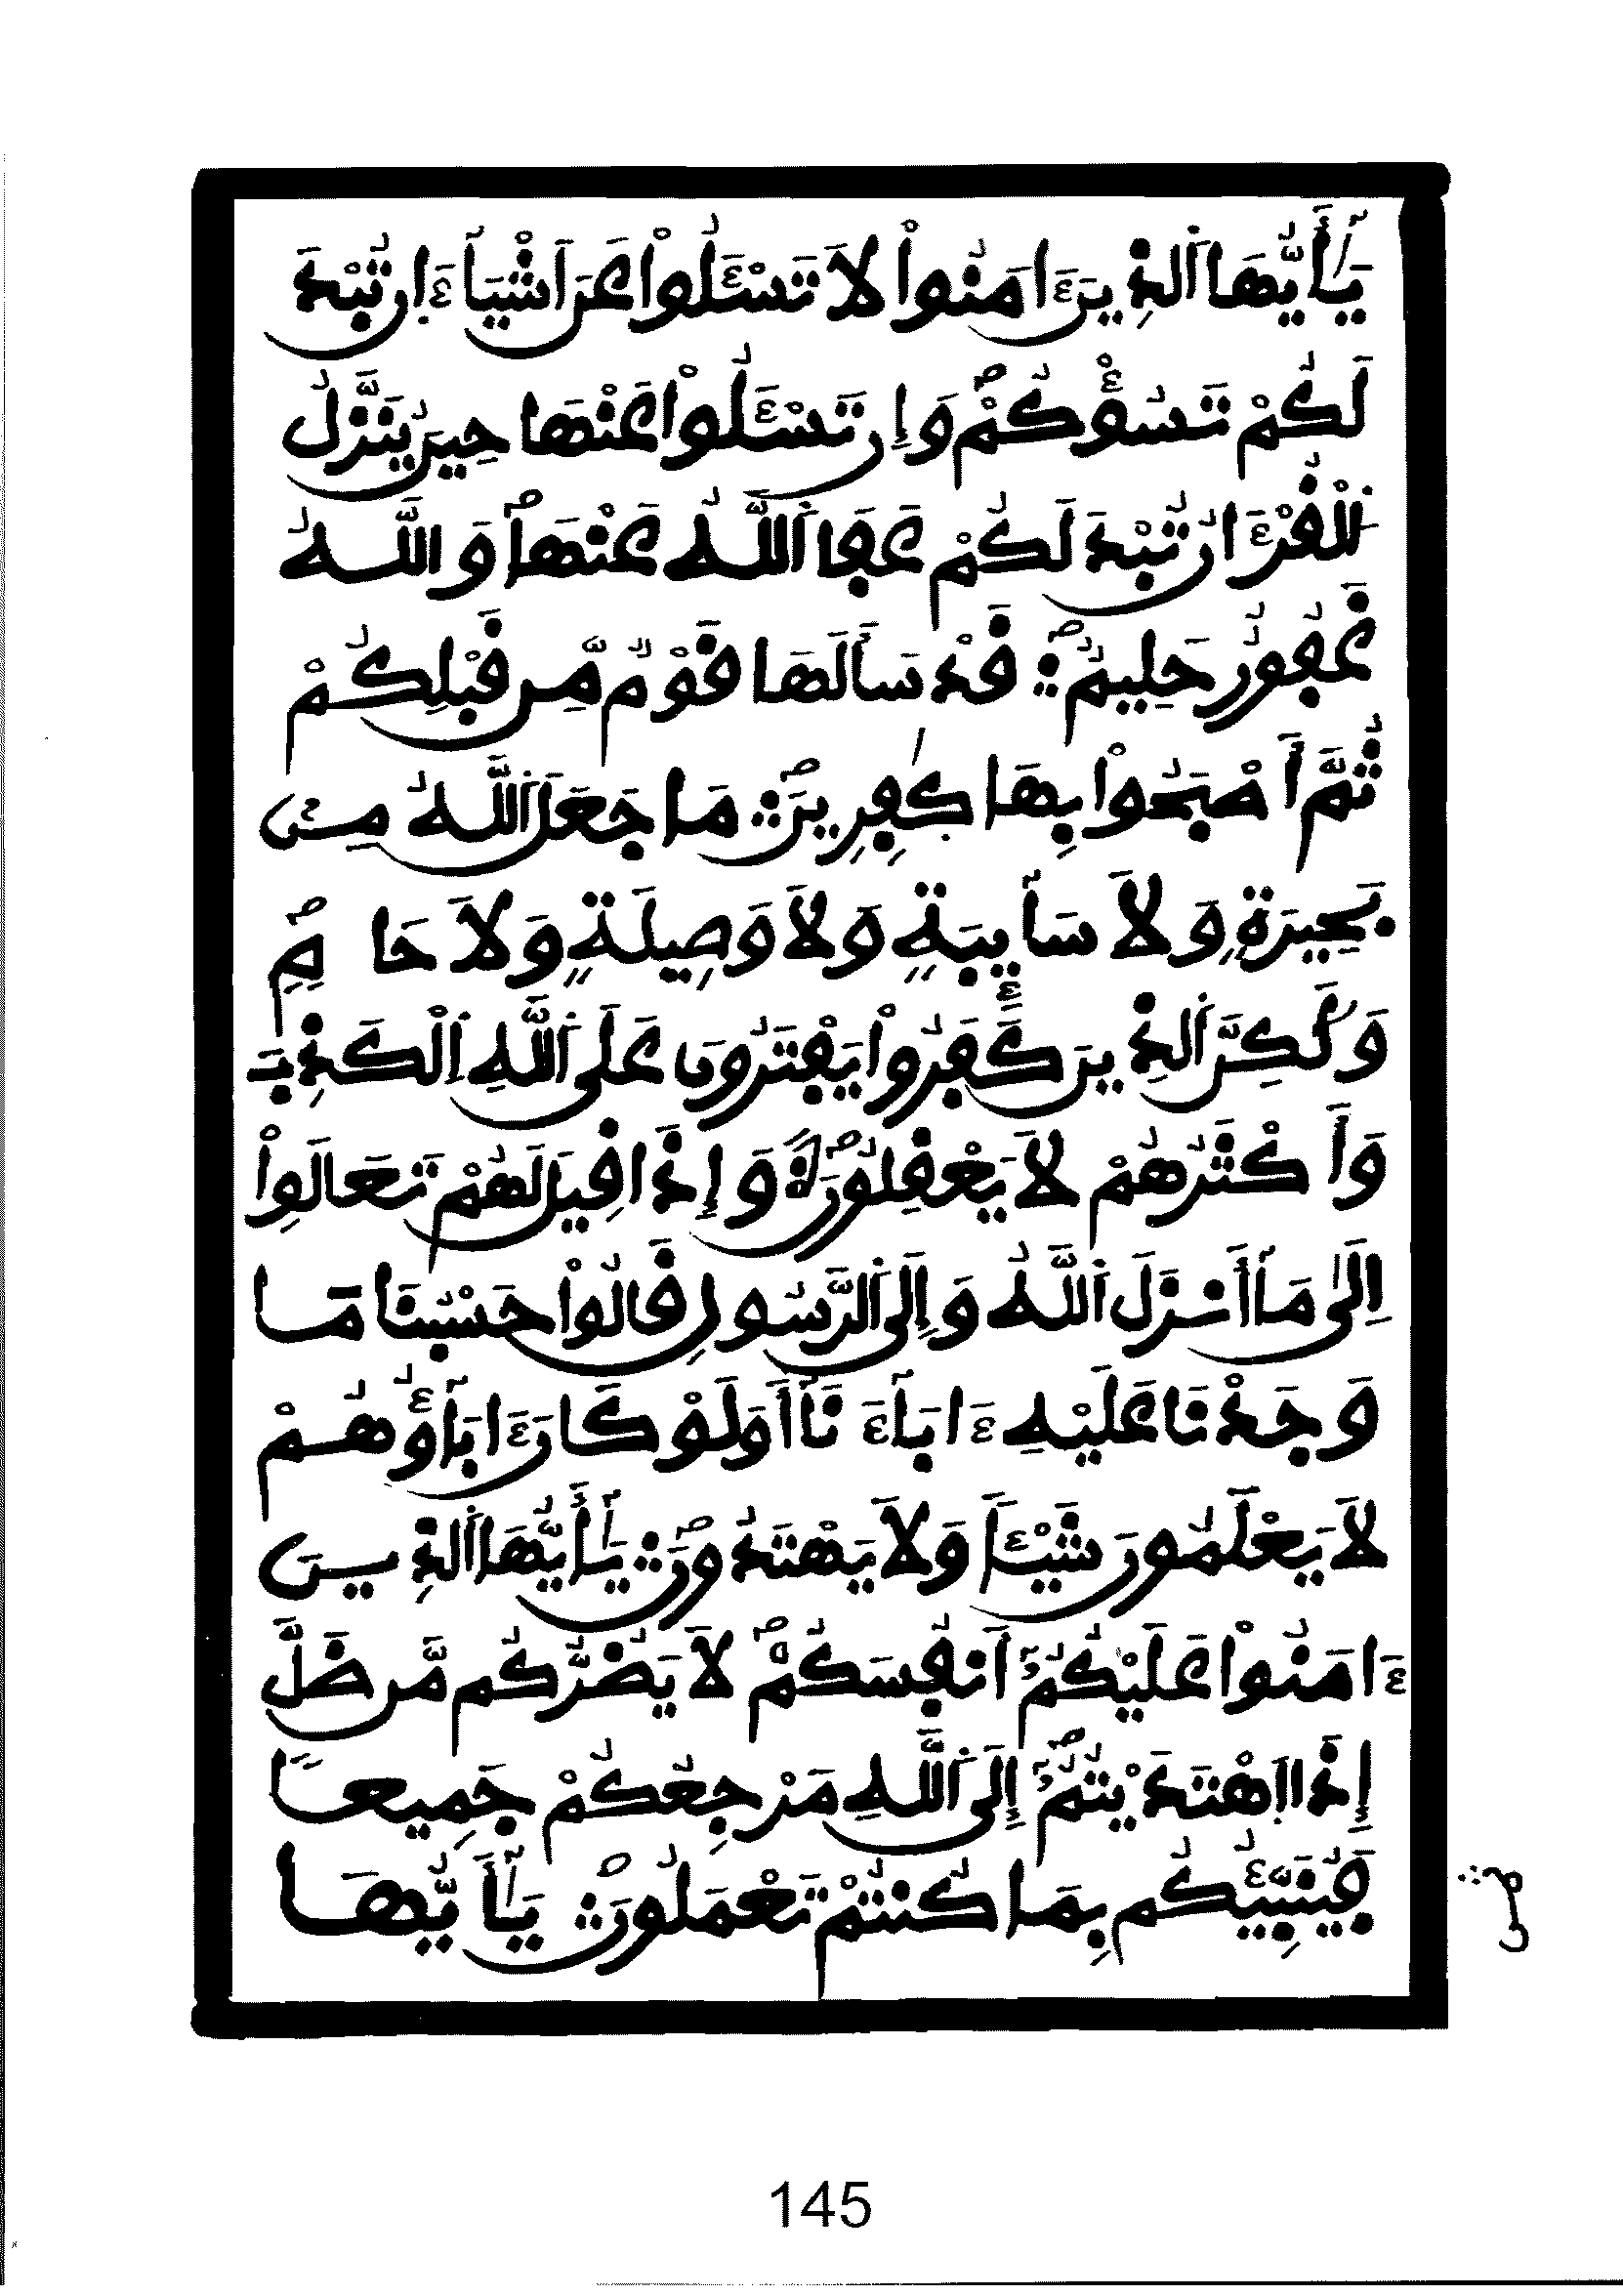 يَٰٓأَيُّهَا اَ۬لذِينَ ءَامَنُواْ لَا تَسْـَٔلُواْ عَنَ اَشْيَآءَ ا۪ن تُبْدَ
لَكُمْ تَسُؤْكُمْۖ وَإِن تَسْـَٔلُواْ عَنْهَا حِينَ يُنَزَّلُ
اُ۬لْقُرْءَانُ تُبْدَ لَكُمْ عَفَا اَ۬للَّهُ عَنْهَاۖ وَاللَّهُ
غَفُورٌ حَلِيمٌۖ ۞ قَدْ سَأَلَهَا قَوْمٌ مِّن قَبْلِكُمْ
ثُمَّ أَصْبَحُواْ بِهَا كَٰفِرِينَۖ ۞ مَا جَعَلَ اَ۬للَّهُ مِنۢ
بَحِيرَةٍ وَلَا سَآئِبَةٍ وَلَا وَصِيلَةٍ وَلَا حَامٍۖ
وَلَٰكِنَّ اَ۬لذِينَ كَفَرُواْ يَفْتَرُونَ عَلَى اَ۬للَّهِ اِ۬لْكَذِبَ
وَأَكْثَرُهُمْ لَا يَعْقِلُونَۖ ۞ وَإِذَا قِيلَ لَهُمْ تَعَالَوِاْ
اِلَىٰ مَآ أَنزَلَ اَ۬للَّهُ وَإِلَى اَ۬لرَّسُولِ قَالُواْ حَسْبُنَا مَا
وَجَدْنَا عَلَيْهِ ءَابَآءَنَآ أَوَلَوْ كَانَ ءَابَآؤُهُمْ
لَا يَعْلَمُونَ شَيْـٔاً وَلَا يَهْتَدُونَۖ ۞ يَٰٓأَيُّهَا اَ۬لذِينَ
ءَامَنُواْ عَلَيْكُمُۥٓ أَنفُسَكُمْۖ لَا يَضُرُّكُم مَّن ضَلَّ
إِذَا اَ۪هْتَدَيْتُمُۥٓۖ إِلَى اَ۬للَّهِ مَرْجِعُكُمْ جَمِيعاً
فَيُنَبِّئُكُم بِمَا كُنتُمْ تَعْمَلُونَۖ ۞ يَٰٓأَيُّهَا
145